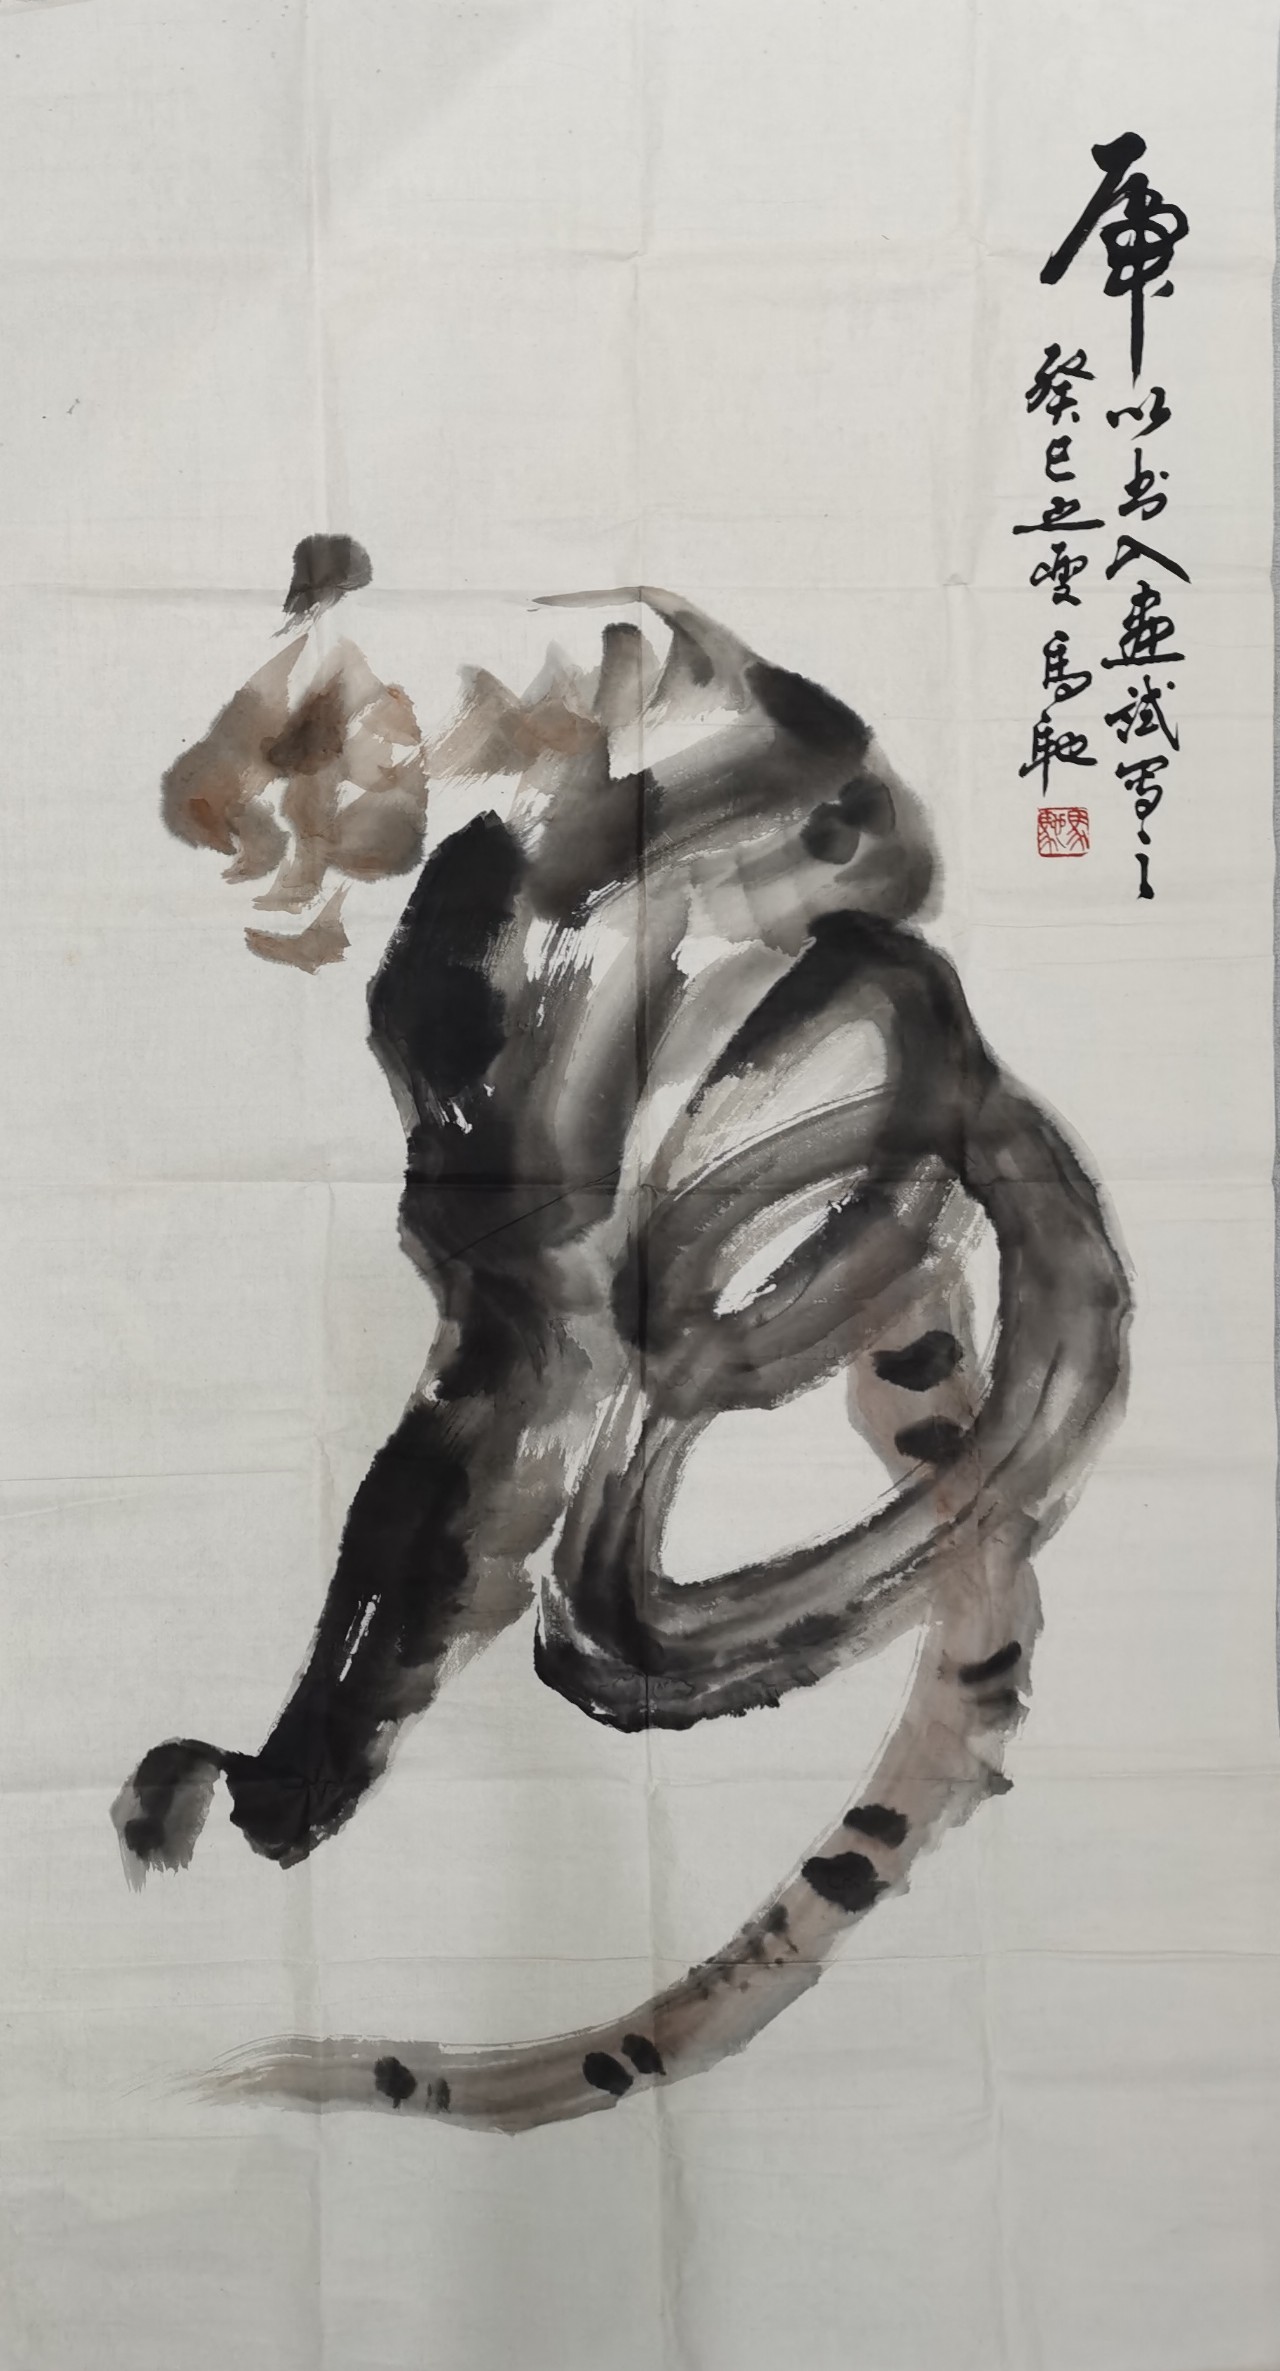 虎 以书入画试写之
癸巳之夏 马驰
馬馳